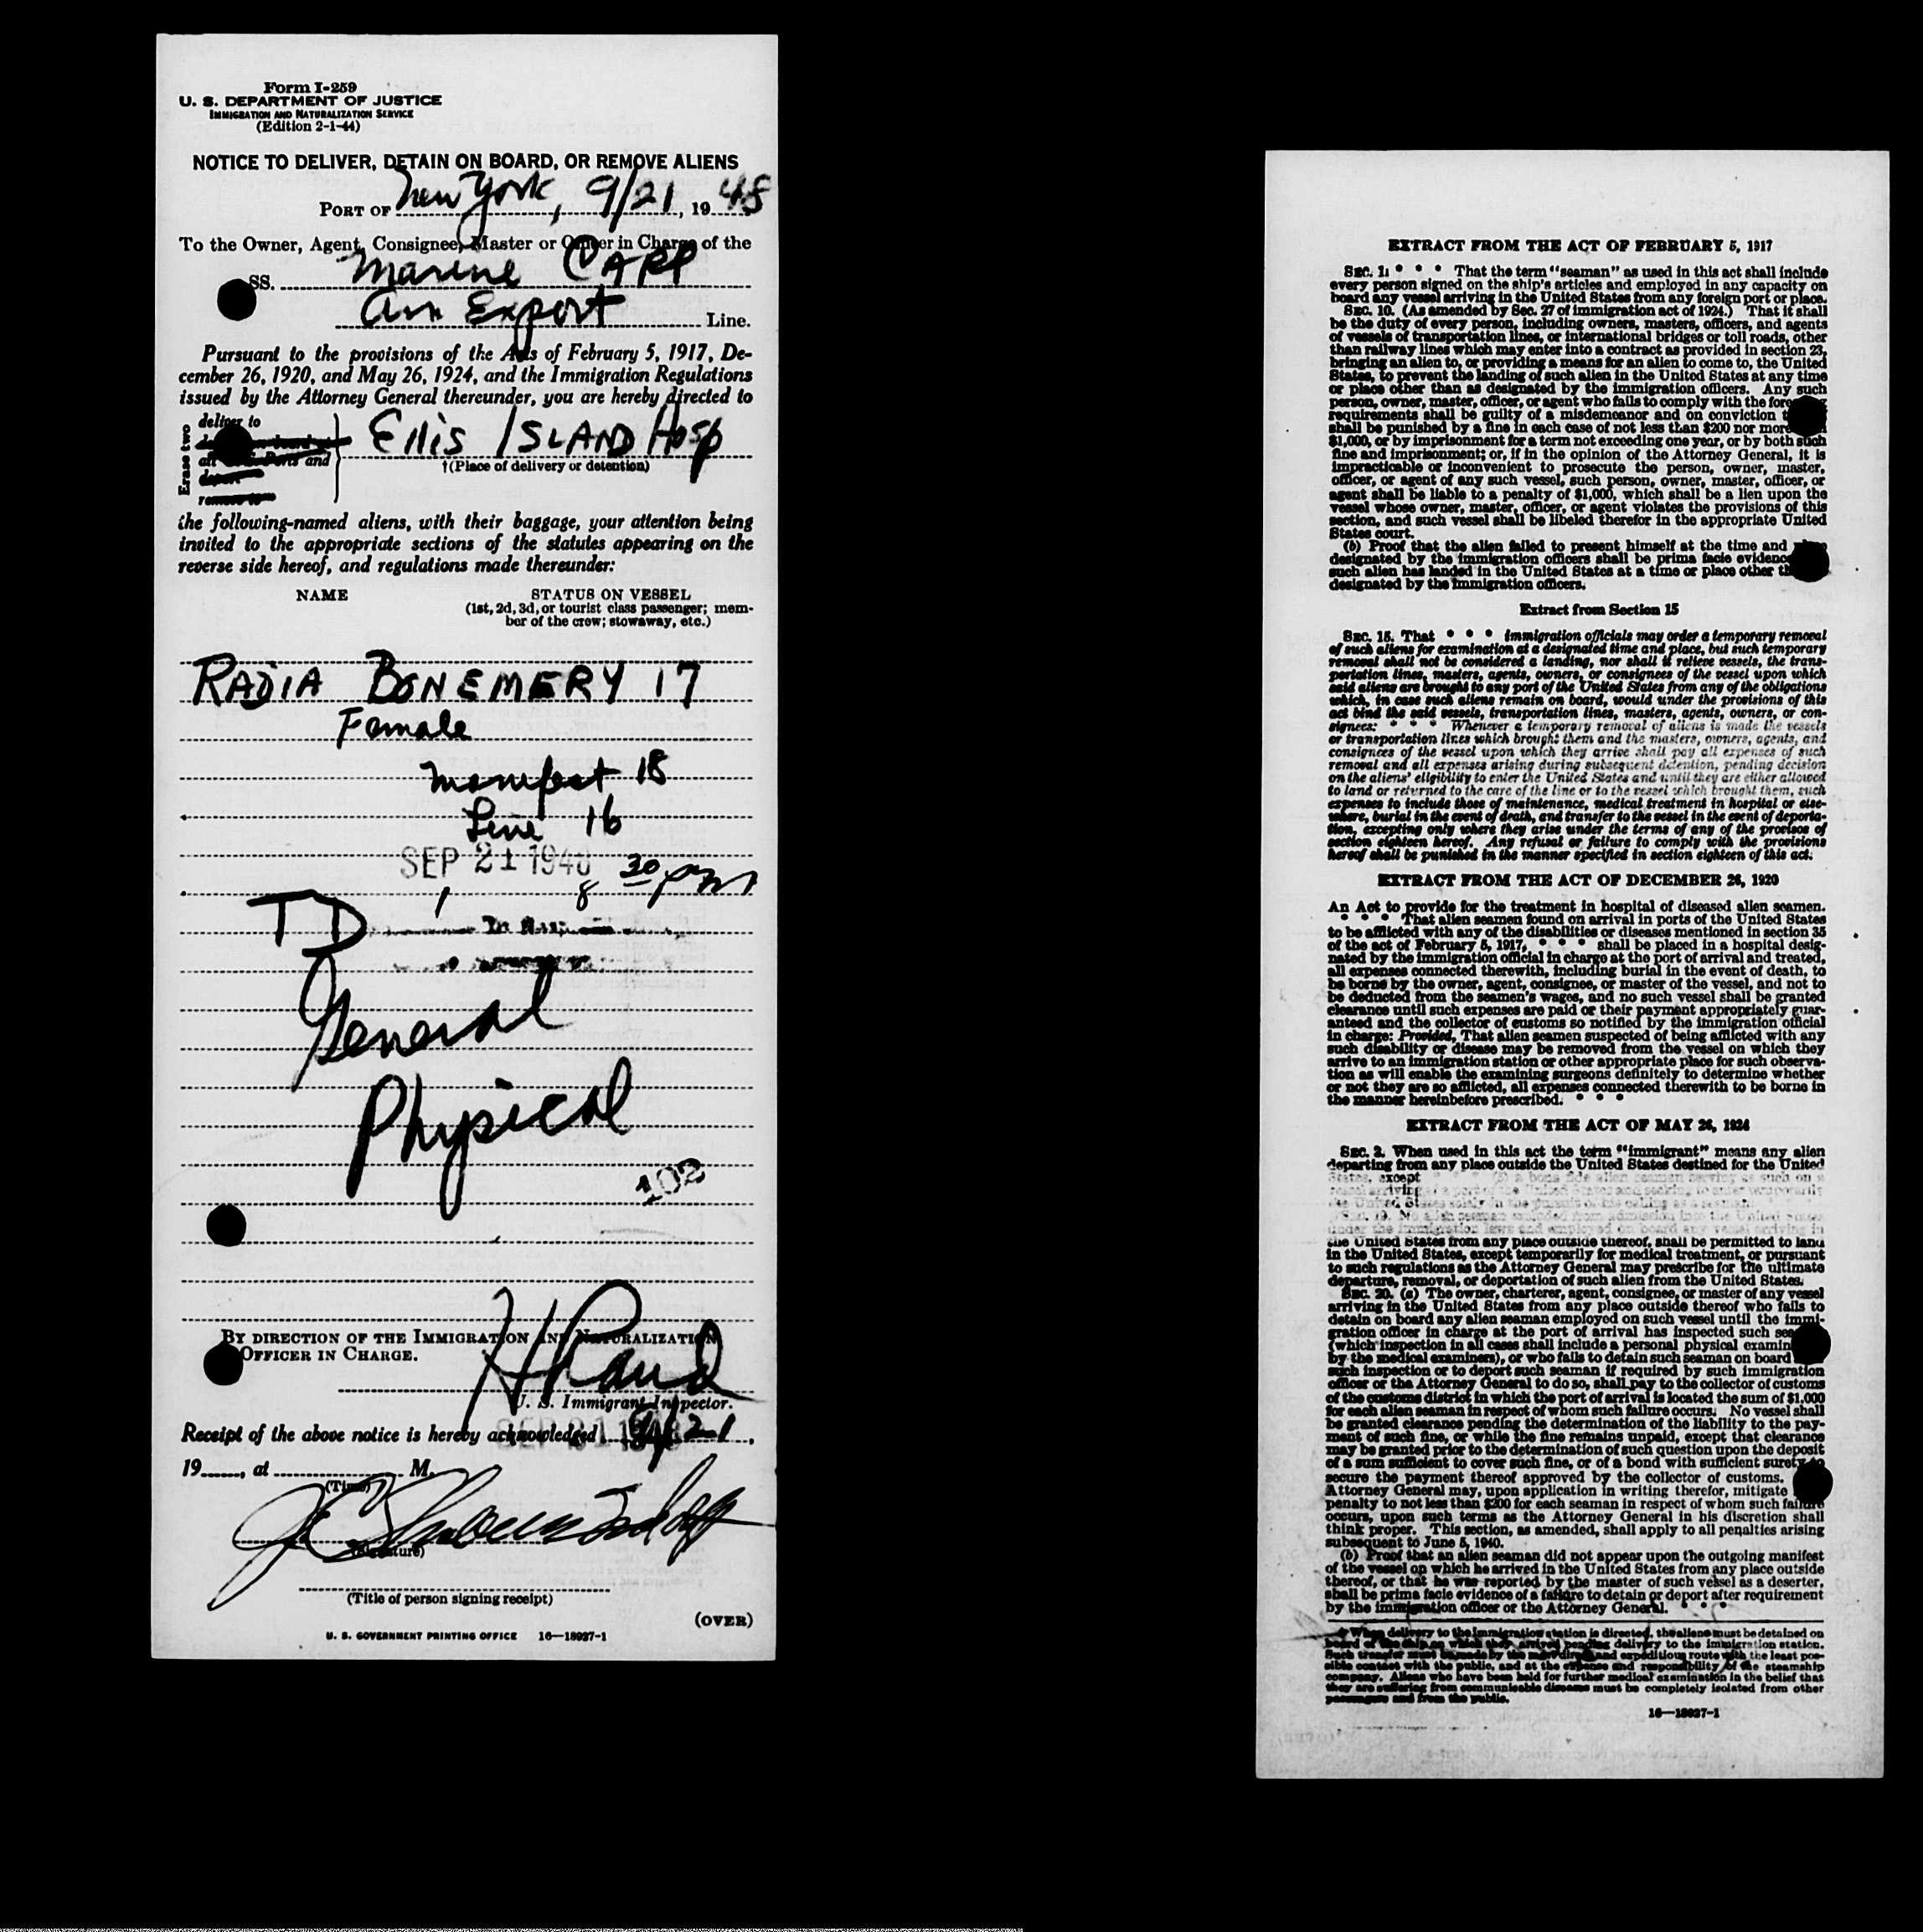 Form I-259
U. S. DEPARTMENT OF JUSTICE
IMMIGRATION AND NATURALIZATION SERVICE
(Edition 2-1-44)
NOTICE TO DELIVER, DETAIN ON BOARD, OR REMOVE ALIENS
PORT OF New York, 9/21, 1948
To the Owner, Agent, Consignee, Master or Officer in Charge of the
SS. Marine CARP
Am Export Line.
Pursuant to the provisions of the Acts of February 5, 1917, De-
cember 26, 1920, and May 26, 1924, and the Immigration Regulations
issued by the Attorney General thereunder, you are hereby directed to
Erase two
deliver to
Ellis ISLAND Hosp
all Ports and
deport
remove to
†(Place of delivery or detention)
the following-named aliens, with their baggage, your attention being
invited to the appropriate sections of the statutes appearing on the
reverse side hereof, and regulations made thereunder:
NAME STATUS ON VESSEL
(1st, 2d, 3d, or tourist class passenger; mem-
ber of the crew; stowaway, etc.)
RADIA BONEMERY 17
Female
manifest 18
Line 16
SEP 21 1948 8 30 pm
TD
General
Physical
102
BY DIRECTION OF THE IMMIGRATION AND NATURALIZATION
OFFICER IN CHARGE.
U. S. Immigrant Inspector.
SEP 21 1948
Receipt of the above notice is hereby acknowledged 9/21,
19____, at ____ M.
(Time)
(Signature)
(Title of person signing receipt)
(OVER)
U. S. GOVERNMENT PRINTING OFFICE 16—18937-1
EXTRACT FROM THE ACT OF FEBRUARY 5, 1917
SEC. 1: * * * That the term "seaman" as used in this act shall include
every person signed on the ship's articles and employed in any capacity on
board any vessel arriving in the United States from any foreign port or place.
SEC. 10. (As amended by Sec. 27 of immigration act of 1924.) That it shall
be the duty of every person, including owners, masters, officers, and agents
of vessels of transportation lines, or international bridges or toll roads, other
than railway lines which may enter into a contract as provided in section 23,
bringing an alien to, or providing a means for an alien to come to, the United
States, to prevent the landing of such alien in the United States at any time
or place other than as designated by the immigration officers. Any such
person, owner, master, officer, or agent who fails to comply with the foregoing
requirements shall be guilty of a misdemeanor and on conviction
shall be punished by a fine in each case of not less than $200 nor more
$1,000, or by imprisonment for a term not exceeding one year, or by both such
fine and imprisonment; or, if in the opinion of the Attorney General, it is
impracticable or inconvenient to prosecute the person, owner, master,
officer, or agent of any such vessel, such person, owner, master, officer, or
agent shall be liable to a penalty of $1,000, which shall be a lien upon the
vessel whose owner, master, officer, or agent violates the provisions of this
section, and such vessel shall be libeled therefor in the appropriate United
States court.
(b) Proof that the alien failed to present himself at the time and
designated by the immigration officers shall be prima facie evidence
such alien has landed in the United States at a time or place other
designated by the immigration officers.
Extract from Section 15
SEC. 15. That * * * immigration officials may order a temporary removal
of such aliens for examination at a designated time and place, but such temporary
removal shall not be considered a landing, nor shall it relieve vessels, the trans-
portation lines, masters, agents, owners, or consignees of the vessel upon which
said aliens are brought to any port of the United States from any of the obligations
which, in case such aliens remain on board, would under the provisions of this
act bind the said vessels, transportation lines, masters, agents, owners, or con-
signees: * * * Whenever a temporary removal of aliens is made the vessels
or transportation lines which brought them and the masters, owners, agents, and
consignees of the vessel upon which they arrive shall pay all expenses of such
removal and all expenses arising during subsequent detention, pending decision
on the aliens' eligibility to enter the United States and until they are either allowed
to land or returned to the care of the line or to the vessel which brought them, such
expenses to include those of maintenance, medical treatment in hospital or else-
where, burial in the event of death, and transfer to the vessel in the event of deporta-
tion, excepting only where they arise under the terms of any of the provisos of
section eighteen hereof. Any refusal or failure to comply with the provisions
hereof shall be punished in the manner specified in section eighteen of this act.
EXTRACT FROM THE ACT OF DECEMBER 26, 1920
An Act to provide for the treatment in hospital of diseased alien seamen.
* * * That alien seamen found on arrival in ports of the United States
to be afflicted with any of the disabilities or diseases mentioned in section 35
of the act of February 5, 1917, * * * shall be placed in a hospital desig-
nated by the immigration official in charge at the port of arrival and treated,
all expenses connected therewith, including burial in the event of death, to
be borne by the owner, agent, consignee, or master of the vessel, and not to
be deducted from the seamen's wages, and no such vessel shall be granted
clearance until such expenses are paid or their payment appropriately guar-
anteed and the collector of customs so notified by the immigration official
in charge: Provided, That alien seamen suspected of being afflicted with any
such disability or disease may be removed from the vessel on which they
arrive to an immigration station or other appropriate place for such observa-
tion as will enable the examining surgeons definitely to determine whether
or not they are so afflicted, all expenses connected therewith to be borne in
the manner hereinbefore prescribed. * * *
EXTRACT FROM THE ACT OF MAY 26, 1924
SEC. 2. When used in this act the term "immigrant" means any alien
departing from any place outside the United States destined for the United
States, except * * * (5) a bona fide alien seaman serving as such on a
vessel arriving at a port of the United States and seeking to enter temporarily
the United States solely in the pursuit of his calling as a seaman.
Sec. 19. No alien seaman excluded from admission into the United States
under the immigration laws and employed on board any vessel arriving in
the United States from any place outside thereof, shall be permitted to land
in the United States, except temporarily for medical treatment, or pursuant
to such regulations as the Attorney General may prescribe for the ultimate
departure, removal, or deportation of such alien from the United States.
SEC. 20. (a) The owner, charterer, agent, consignee, or master of any vessel
arriving in the United States from any place outside thereof who fails to
detain on board any alien seaman employed on such vessel until the immi-
gration officer in charge at the port of arrival has inspected such
(which inspection in all cases shall include a personal physical
by the medical examiners), or who fails to detain such seaman on board
such inspection or to deport such seaman if required by such immigration
officer or the Attorney General to do so, shall pay to the collector of customs
of the customs district in which the port of arrival is located the sum of $1,000
for each alien seaman in respect of whom such failure occurs. No vessel shall
be granted clearance pending the determination of the liability to the pay-
ment of such fine, or while the fine remains unpaid, except that clearance
may be granted prior to the determination of such question upon the deposit
of a sum sufficient to cover such fine, or of a bond with sufficient surety to
secure the payment thereof approved by the collector of customs.
Attorney General may, upon application in writing therefor, mitigate
penalty to not less than $200 for each seaman in respect of whom such failure
occurs, upon such terms as the Attorney General in his discretion shall
think proper. This section, as amended, shall apply to all penalties arising
subsequent to June 5, 1940.
(b) Proof that an alien seaman did not appear upon the outgoing manifest
of the vessel on which he arrived in the United States from any place outside
thereof, or that he was reported by the master of such vessel as a deserter,
shall be prima facie evidence of a failure to detain or deport after requirement
by the immigration officer or the Attorney General. * * *
† When delivery to the immigration station is directed, the aliens must be detained on
board of the ship on which they arrived pending delivery to the immigration station.
Such transfer must be made by the most direct and expeditious route with the least pos-
sible contact with the public, and at the expense and responsibility of the steamship
company. Aliens who have been held for further medical examination in the belief that
they are suffering from communicable disease must be completely isolated from other
passengers and from the public.
16—18937-1